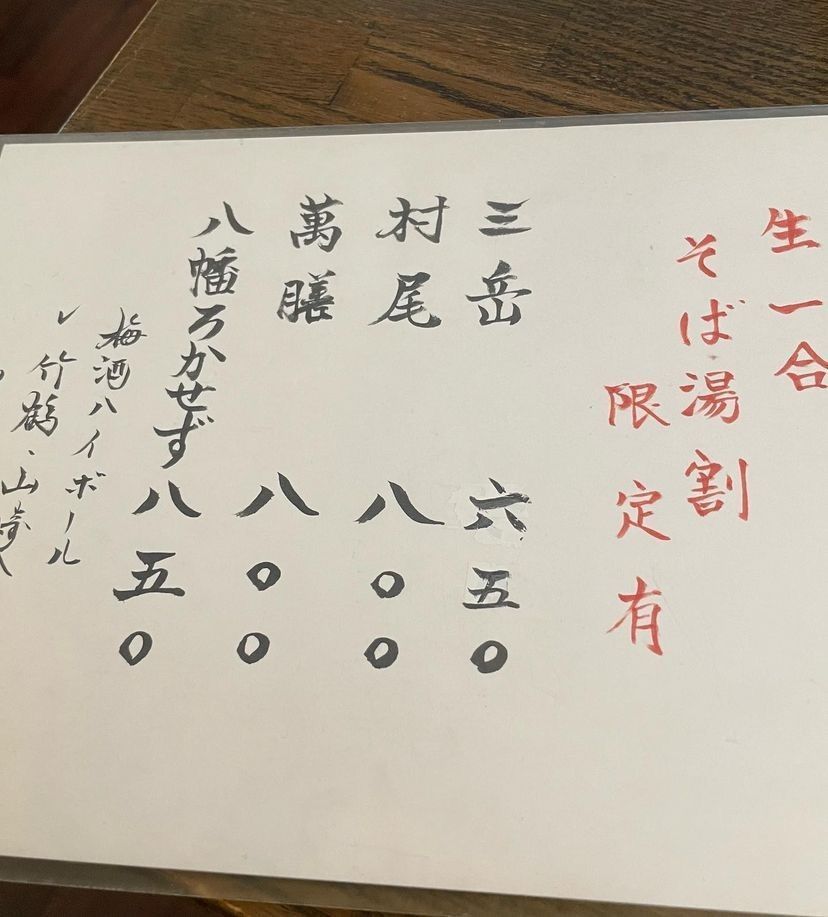 生一合
そば湯割
限定有
三岳 六五〇
村尾 八〇〇
萬膳 八〇〇
八幡ろかせず 八五〇
梅酒ハイボール
竹鶴、山崎